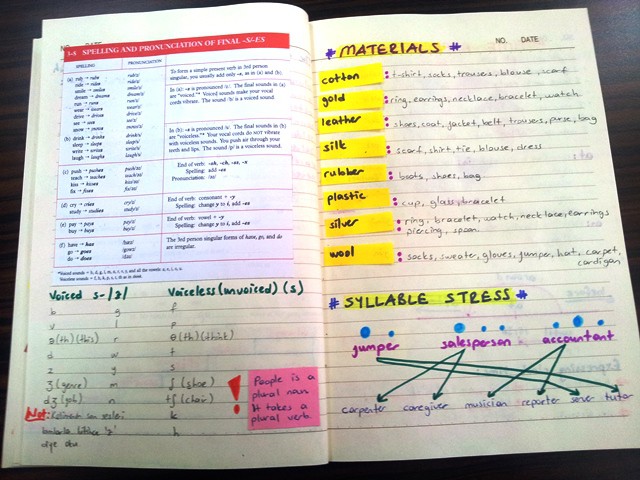 NO. DATE
1-5 SPELLING AND PRONUNCIATION OF FINAL -S/-ES
SPELLING PRONUNCIATION
(a) rub → rubs rub/z/ To form a simple present verb in 3rd person
ride → rides ride/z/ singular, you usually add only -s, as in (a) and (b).
smile → smiles smile/z/ In (a): -s is pronounced /z/. The final sounds in (a)
dream → dreams dream/z/ are "voiced." Voiced sounds make your vocal
run → runs run/z/ cords vibrate. The sound /b/ is a voiced sound
wear → wears wear/z/
drive → drives drive/z/
see → sees see/z/
snow → snows snow/z/
(b) drink → drinks drink/s/ In (b): -s is pronounced /s/. The final sounds in (b)
sleep → sleeps sleep/s/ are "voiceless." Your vocal cords do NOT vibrate
write → writes write/s/ with voiceless sounds. You push air through your
laugh → laughs laugh/s/ teeth and lips. The sound /p/ is a voiceless sound.
(c) push → pushes push/əz/ End of verb: -sh, -ch, -ss, -x
teach → teaches teach/əz/ Spelling: add -es
kiss → kisses kiss/əz/ Pronunciation: /əz/
fix → fixes fix/əz/
(d) cry → cries cry/z/ End of verb: consonant + -y
study → studies study/z/ Spelling: change y to i, add -es
(e) pay → pays pay/z/ End of verb: vowel + -y
buy → buys buy/z/
(f) have → has /hæz/ The 3rd person singular forms of have, go, and do
go → goes /goz/ are irregular.
do → does /dəz/
Voiced s- /z/ Voiceless (unvoiced) (s)
b g f
v l p
ð (th) (this) r θ (th) (think)
d w t
z y s
ʒ (genre) m ʃ (shoe)
dʒ (job) n tʃ (chair)
Not: k
h
! People is a
plural noun.
It takes a
plural verb.
NO. DATE
# MATERIALS #
cotton : t-shirt, socks, trousers, blouse, scarf
gold : ring, earrings, necklace, bracelet, watch
leather : shoes, coat, jacket, belt, trousers, purse, bag
silk : scarf, shirt, tie, blouse, dress
rubber : boots, shoes, bag
plastic : cup, glass, bracelet
silver : ring, bracelet, watch, necklace, earrings
piercing, spoon
wool : socks, sweater, gloves, jumper, hat, carpet,
cardigan
# SYLLABLE STRESS #
jumper salesperson accountant
carpenter caregiver musician reporter server tutor